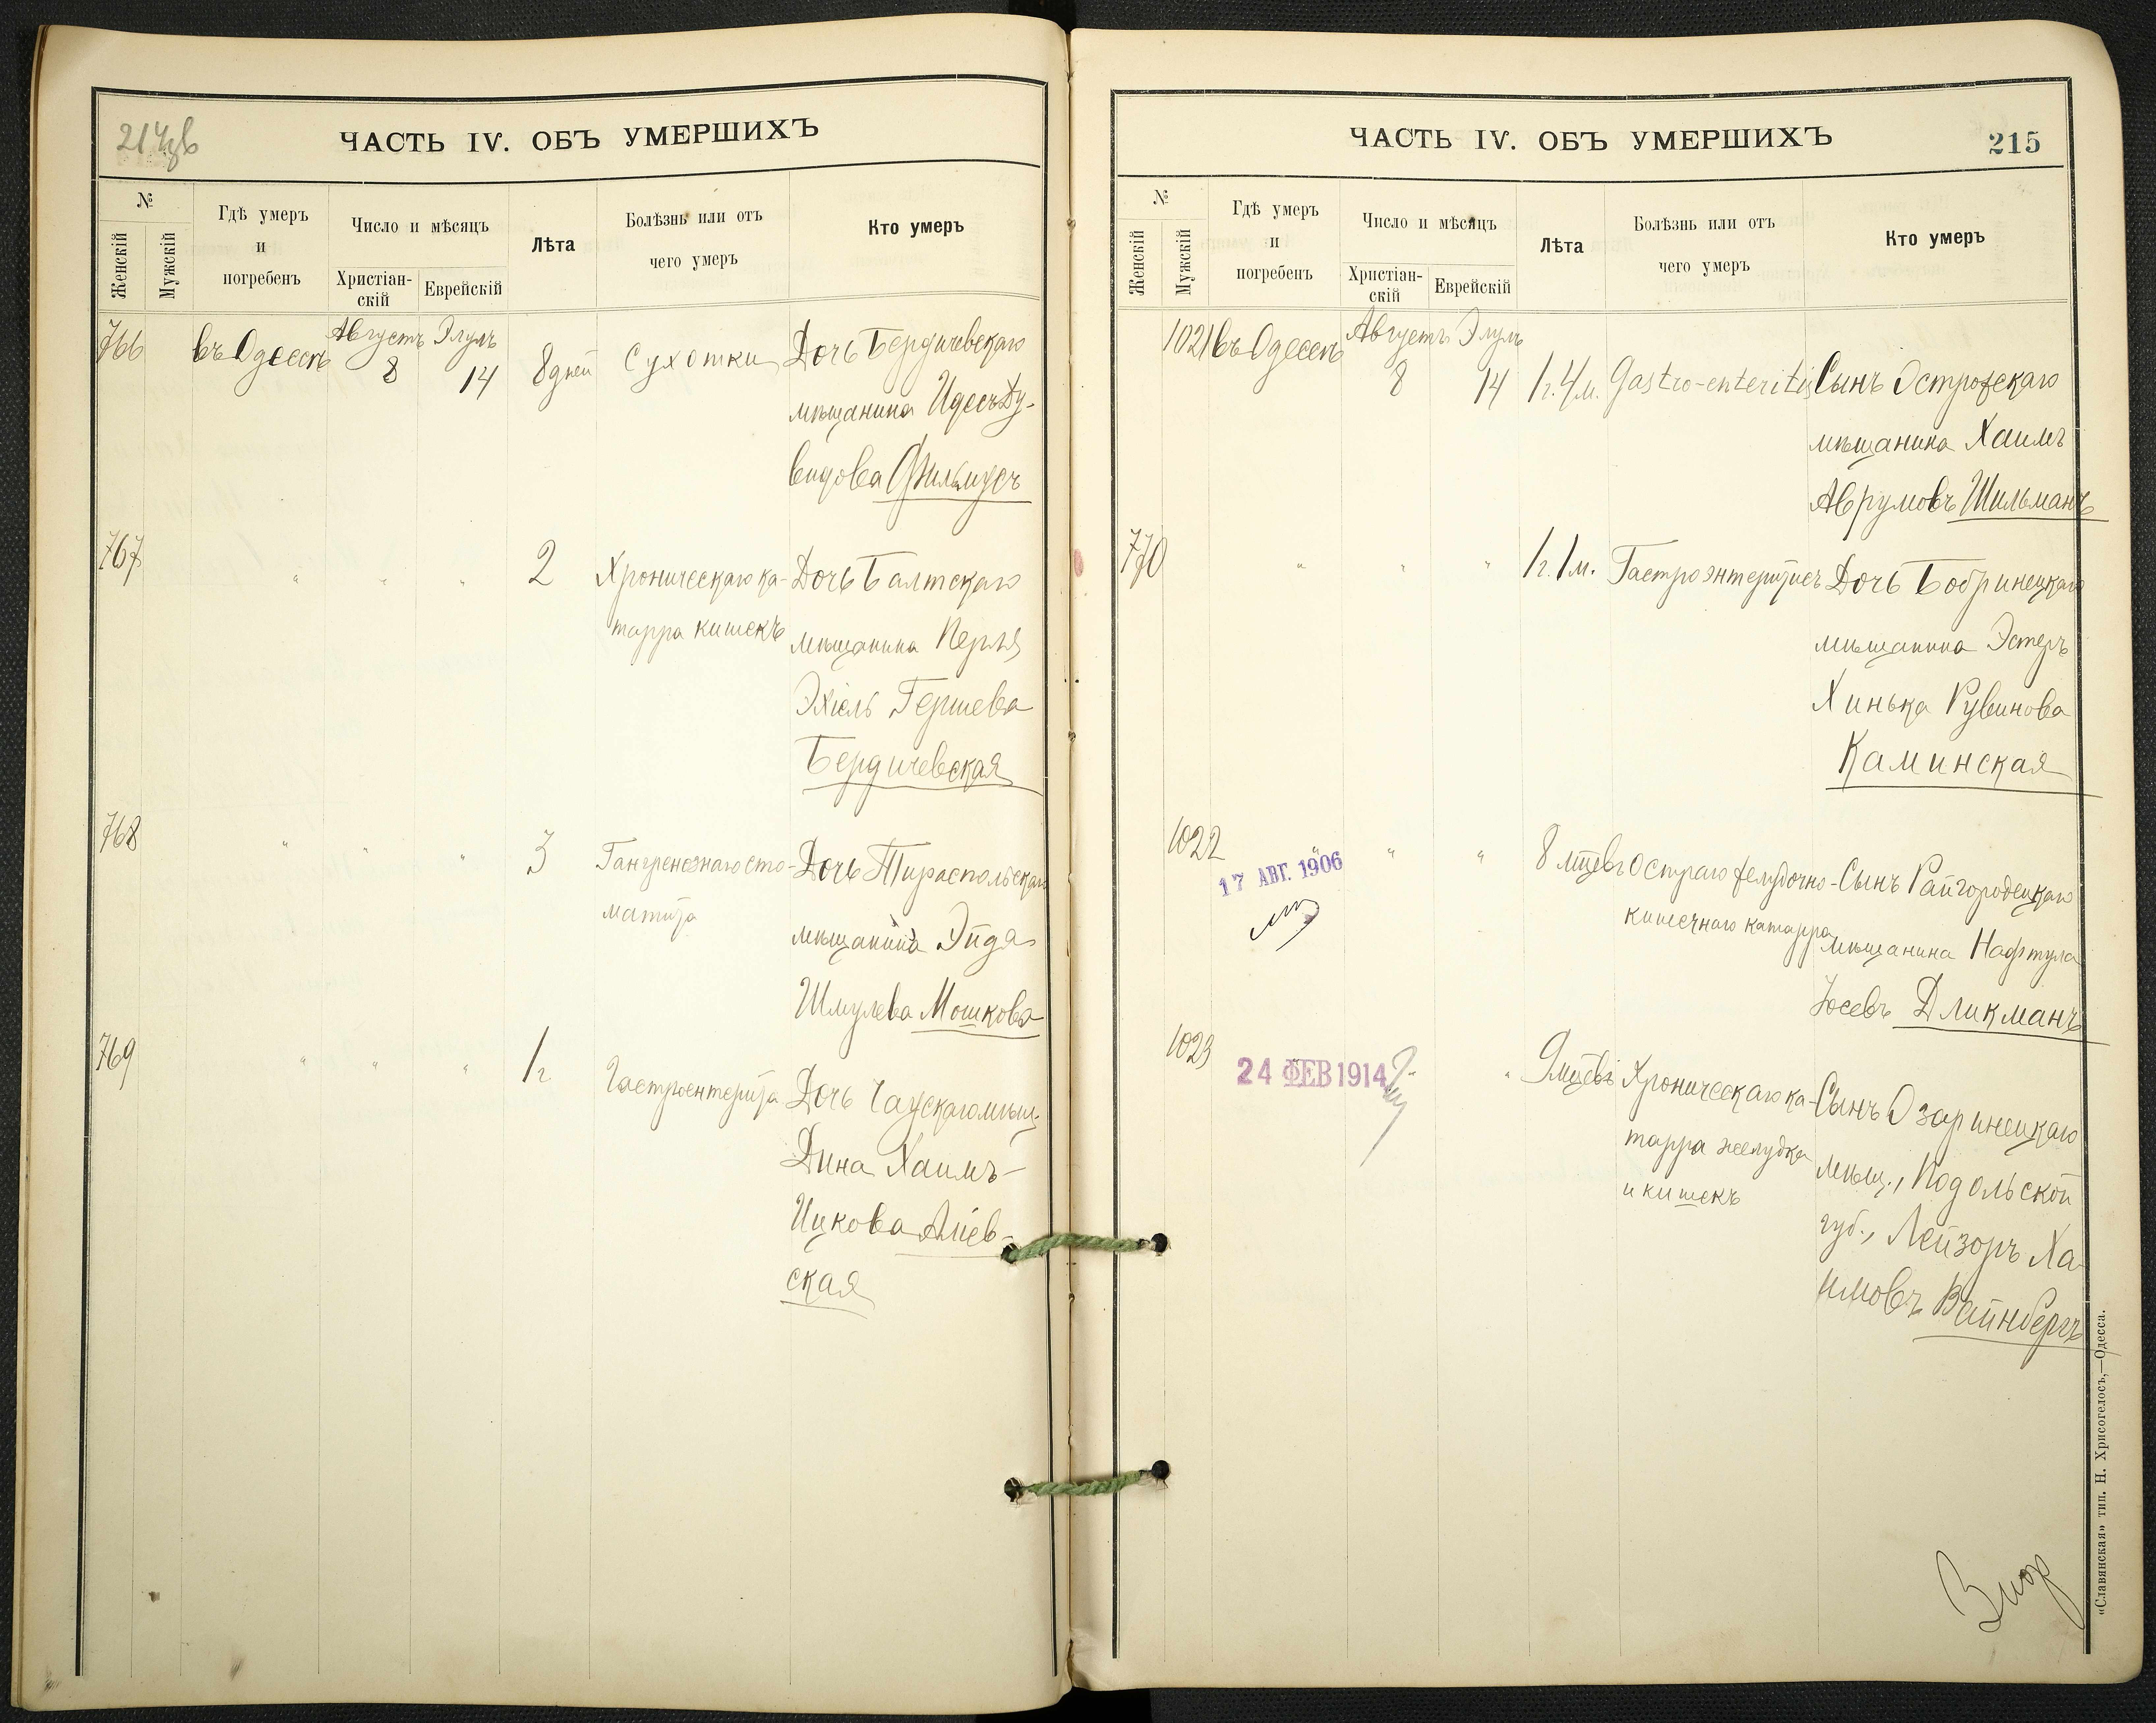 214об
ЧАСТЬ IV. ОБЪ УМЕРШИХЪ
№
Женскій
Мужскій
Гдѣ умеръ
и
погребенъ
Число и мѣсяцъ
Христіан-
скій
Еврейскій
Лѣта
Болѣзнь или отъ
чего умеръ
Кто умеръ
766 въ Одессѣ Августъ 8 Элулъ 14 8 дней Сухотки Дочь Бердичевскаго
мѣщанина Идесъ Ду-
видова Фильмусъ
767 " " " 2 Хроническаго ка- Дочь Балтскаго
тарра кишекъ мѣщанина Перля
Эхіель Гершева
Бердичевская
768 " " " 3 Гангренознаго сто- Дочь Тираспольскаго
матита мѣщанина Эйда
Шмулева Мошкова
769 " " " 1 г Гастроентерита Дочь Чаускаго мѣщ
Дина Хаимъ-
Ицкова Аліев-
ская
ЧАСТЬ IV. ОБЪ УМЕРШИХЪ
215
№
Женскій
Мужскій
Гдѣ умеръ
и
погребенъ
Число и мѣсяцъ
Христіан-
скій
Еврейскій
Лѣта
Болѣзнь или отъ
чего умеръ
Кто умеръ
1021 въ Одессѣ Августъ 8 Элулъ 14 1 г. 4 м. Gastro-enteritis Сынъ Острожскаго
мѣщанина Хаимъ
Аврумовъ Шильманъ
770 " " " 1 г. 1 м. Гастроэнтеритисъ Дочь Бобринецкаго
мѣщанина Эстеръ
Хинька Рувинова
Каминская
1022 " " " 8 мцевъ Остраго желудочно- Сынъ Райгородецкаго
17 АВГ. 1906
кишечнаго катарра мѣщанина Нафтула
Іосевъ Дликманъ
1023 " " 9 мцевъ Хроническаго ка- Сынъ Озаринецкаго
24 ФЕВ 1914
тарра желудка мѣщ., Подольской
и кишекъ губ., Лейзоръ Ха-
имовъ Вайнбергъ
«Славянская» тип. Н. Хрисогелосъ,—Одесса.